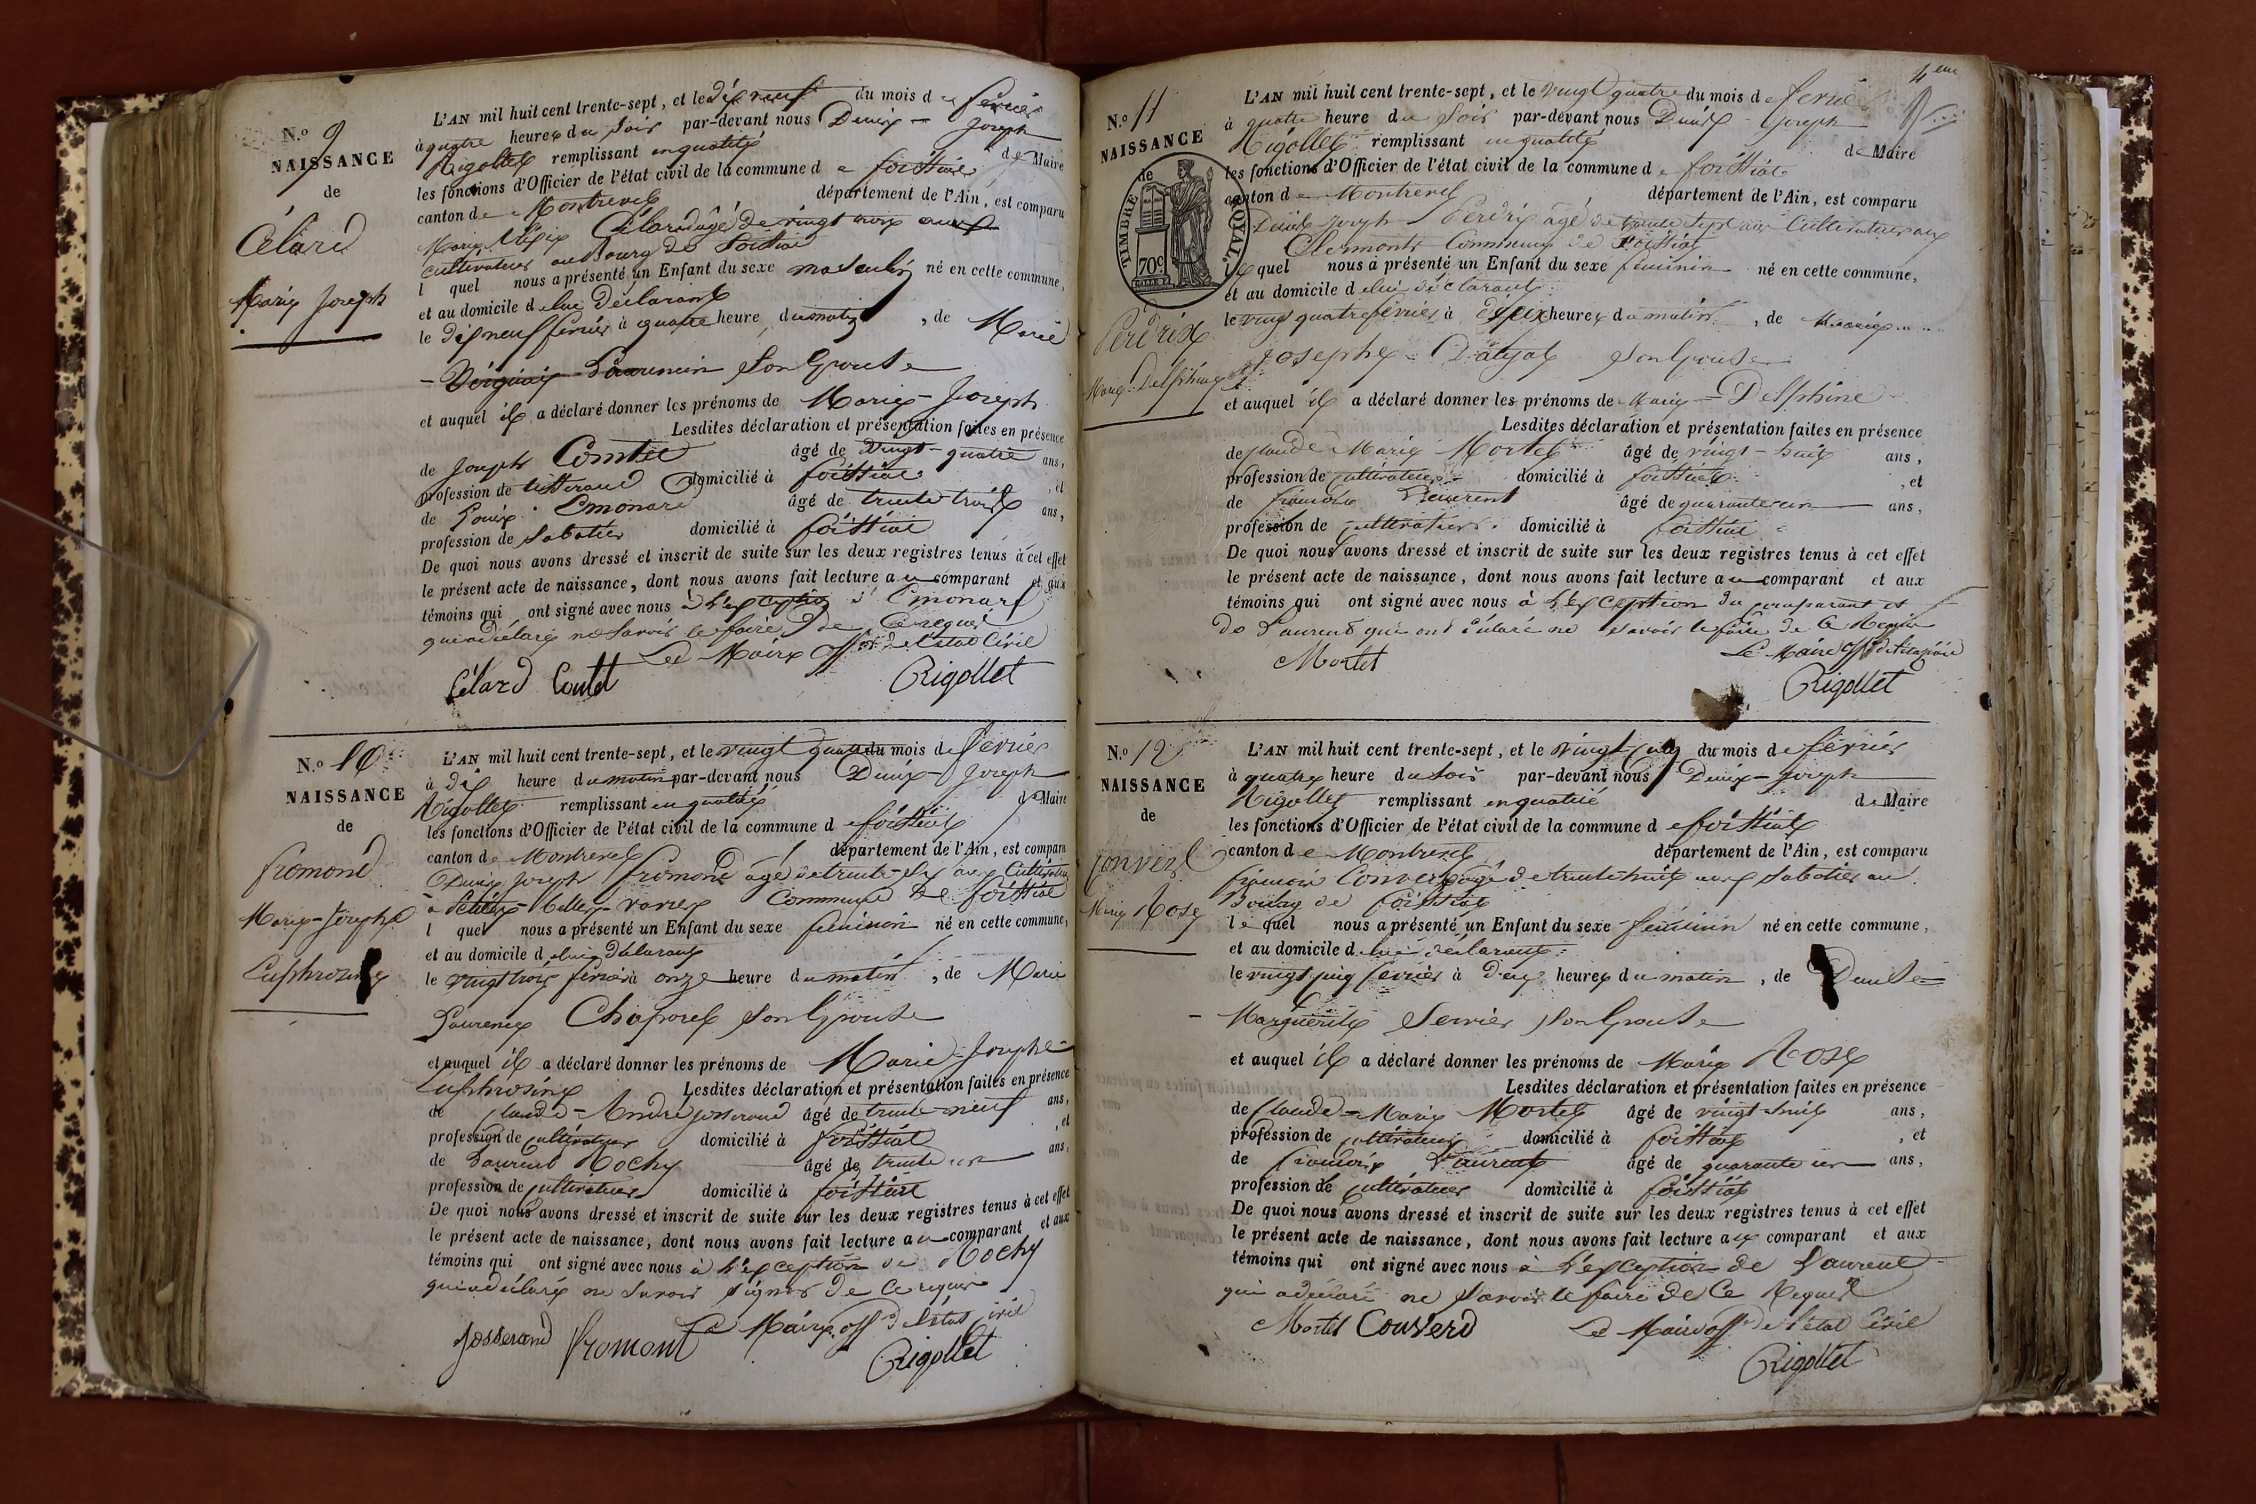 N.o 9
NAISSANCE
de
Célard
Marie Joseph
L'AN mil huit cent trente-sept, et le dix neuf du mois de février
à quatre heures du soir par-devant nous Denis - Joseph
Rigollet remplissant en qualité de Maire
les fonctions d'Officier de l'état civil de la commune de foissiat
canton de Montrevel département de l'Ain, est comparu
Marie Célard âgé de vingt trois ans
cultivateur au Bourg de foissiat
l quel nous a présenté un Enfant du sexe masculin né en cette commune,
et au domicile de lui déclarant
le dix neuf février à quatre heure du matin, de Marie
son Epouse
et auquel il a déclaré donner les prénoms de Marie - Joseph
Lesdites déclaration et présentation faites en présence
de Joseph Comtet âgé de vingt-quatre ans,
profession de tisserand domicilié à foissiat, et
de Louis Emonard âgé de trente trois ans,
profession de Sabotier domicilié à foissiat
De quoi nous avons dressé et inscrit de suite sur les deux registres tenus à cet effet
le présent acte de naissance, dont nous avons fait lecture au comparant et aux
témoins qui ont signé avec nous à l'exception d'Emonard
qui a déclaré ne savoir le faire de ce requis
Le Maire off de l'état Civil
Célard Contet Rigollet
N.o 10
NAISSANCE
de
fromond
Marie-Josephe
Euphrosine
L'AN mil huit cent trente-sept, et le vingt quatre du mois de février
à dix heure du matin par-devant nous Denis - Joseph
Rigollet remplissant en qualité de Maire
les fonctions d'Officier de l'état civil de la commune de foissiat
canton de Montrevel département de l'Ain, est comparu
Denis Joseph fromond âgé de trente-six ans Cultivateur
à Commune de foissiat
l quel nous a présenté un Enfant du sexe féminin né en cette commune,
et au domicile de lui déclarant
le vingt trois février à onze heure du matin, de Marie
Laurence Chaporel son Epouse
et auquel il a déclaré donner les prénoms de Marie - Josephe
Euphrosine Lesdites déclaration et présentation faites en présence
de Claude-André Josserand âgé de trente-neuf ans,
profession de cultivateur domicilié à foissiat, et
de Laurent Rochy âgé de trente un ans,
profession de cultivateur domicilié à foissiat
De quoi nous avons dressé et inscrit de suite sur les deux registres tenus à cet effet
le présent acte de naissance, dont nous avons fait lecture au comparant et aux
témoins qui ont signé avec nous à l'exception de Rochy
qui a déclaré ne savoir signer de ce requis
Le Maire off d l'état civil
Josserand fromont Rigollet
4eme
N.o 11
NAISSANCE
de
TIMBRE ROYAL
70c
Perdrix
Marie-Delphine
L'AN mil huit cent trente-sept, et le vingt quatre du mois de février
à quatre heure du soir par-devant nous Denis - Joseph
Rigollet remplissant en qualité de Maire
les fonctions d'Officier de l'état civil de la commune de foissiat
canton de Montrevel département de l'Ain, est comparu
Denis Joseph Perdrix âgé de trente sept ans Cultivateur aux
Clermonts Commune de foissiat
le quel nous a présenté un Enfant du sexe féminin né en cette commune,
et au domicile de lui déclarant
le vingt quatre février à heures du matin, de Marie
Josephe son Epouse
et auquel il a déclaré donner les prénoms de Marie - Delphine
Lesdites déclaration et présentation faites en présence
de Claude Marie Mortel âgé de vingt-huit ans,
profession de cultivateur domicilié à foissiat, et
de françois Laurent âgé de quarante un ans,
profession de cultivateur domicilié à foissiat
De quoi nous avons dressé et inscrit de suite sur les deux registres tenus à cet effet
le présent acte de naissance, dont nous avons fait lecture au comparant et aux
témoins qui ont signé avec nous à l'exception du comparant et
de Laurent qui ont déclaré ne savoir le faire de ce Requis
Le Maire off de l'état civil
Mortel Rigollet
N.o 12
NAISSANCE
de
Convert
Marie Rose
L'AN mil huit cent trente-sept, et le vingt-cinq du mois de février
à quatre heure du soir par-devant nous Denis - Joseph
Rigollet remplissant en qualité de Maire
les fonctions d'Officier de l'état civil de la commune de foissiat
canton de Montrevel département de l'Ain, est comparu
françois Convert âgé de trente huit ans Sabotier au
Bourg de foissiat
le quel nous a présenté un Enfant du sexe féminin né en cette commune,
et au domicile de lui déclarant
le vingt cinq février à deux heures du matin, de Denise
Marguerite Servier son Epouse
et auquel il a déclaré donner les prénoms de Marie Rose
Lesdites déclaration et présentation faites en présence
de Claude-Marie Mortel âgé de vingt-huit ans,
profession de cultivateur domicilié à foissiat, et
de françois Laurent âgé de quarante un ans,
profession de cultivateur domicilié à foissiat
De quoi nous avons dressé et inscrit de suite sur les deux registres tenus à cet effet
le présent acte de naissance, dont nous avons fait lecture aux comparant et aux
témoins qui ont signé avec nous à l'exception de Laurent
qui a déclaré ne savoir le faire de ce Requis
Mortel Convert Le Maire off de l'état Civil
Rigollet